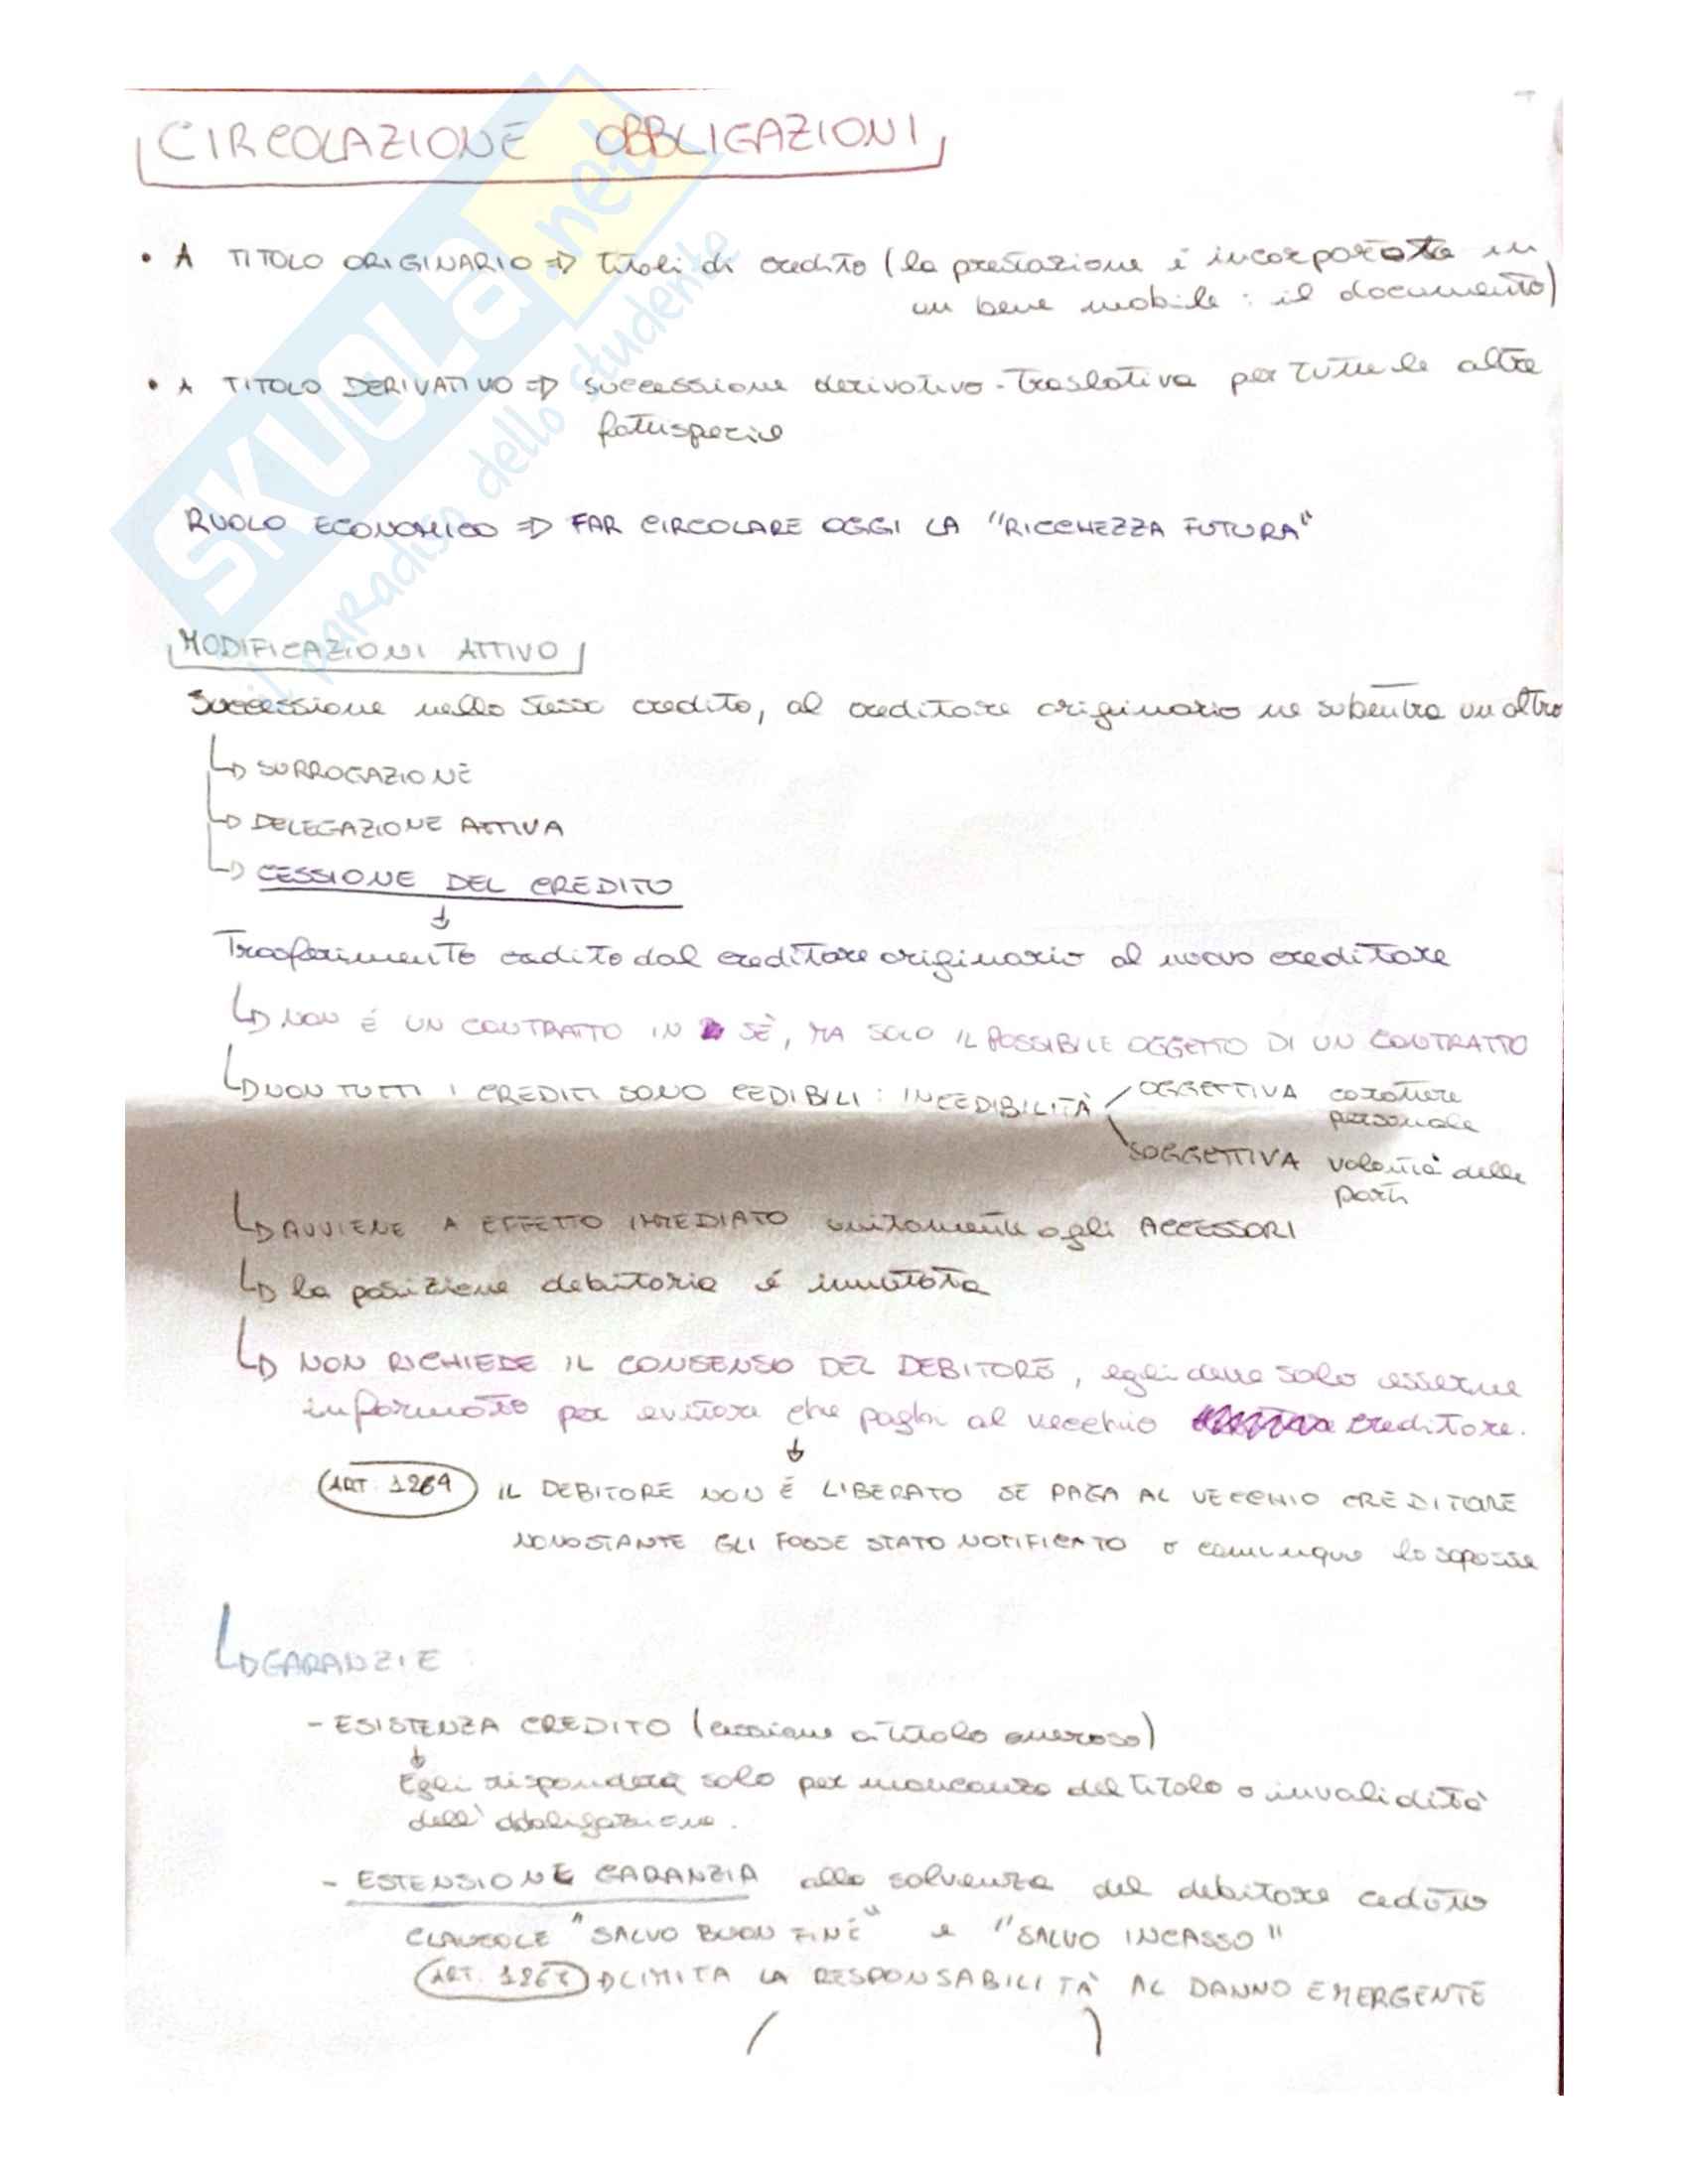 CIRCOLAZIONE OBBLIGAZIONI
• A TITOLO ORIGINARIO => titoli di credito (la prestazione è incorporata in
un bene mobile: il documento)
• A TITOLO DERIVATIVO => successione derivativo-traslativa per tutte le altre
fattispecie
RUOLO ECONOMICO => FAR CIRCOLARE OGGI LA "RICCHEZZA FUTURA"
MODIFICAZIONI ATTIVO
Successione nello stesso credito, al creditore originario ne subentra un altro
SURROGAZIONE
DELEGAZIONE ATTIVA
CESSIONE DEL CREDITO
Trasferimento credito dal creditore originario al nuovo creditore
NON É UN CONTRATTO IN SÈ, MA SOLO IL POSSIBILE OGGETTO DI UN CONTRATTO
NON TUTTI I CREDITI SONO CEDIBILI: INCEDIBILITÀ OGGETTIVA carattere
personale
SOGGETTIVA volontà delle
parti
AVVIENE A EFFETTO IMMEDIATO unitamente agli ACCESSORI
la posizione debitoria é immutata
NON RICHIEDE IL CONSENSO DEL DEBITORE, egli deve solo esserne
informato per evitare che paghi al vecchio creditore.
ART. 1264 IL DEBITORE NON É LIBERATO SE PAGA AL VECCHIO CREDITORE
NONOSTANTE GLI FOSSE STATO NOTIFICATO o comunque lo sapesse
GARANZIE
- ESISTENZA CREDITO (cessione a titolo oneroso)
Egli risponderà solo per mancanza del titolo o invalidità
dell'obbligazione.
- ESTENSIONE GARANZIA alla solvenza del debitore ceduto
CLAUSOLE "SALVO BUON FINE" e "SALVO INCASSO"
ART. 1267 LIMITA LA RESPONSABILITÀ AL DANNO EMERGENTE
( )
SKUOLA.net
il paradiso dello studente